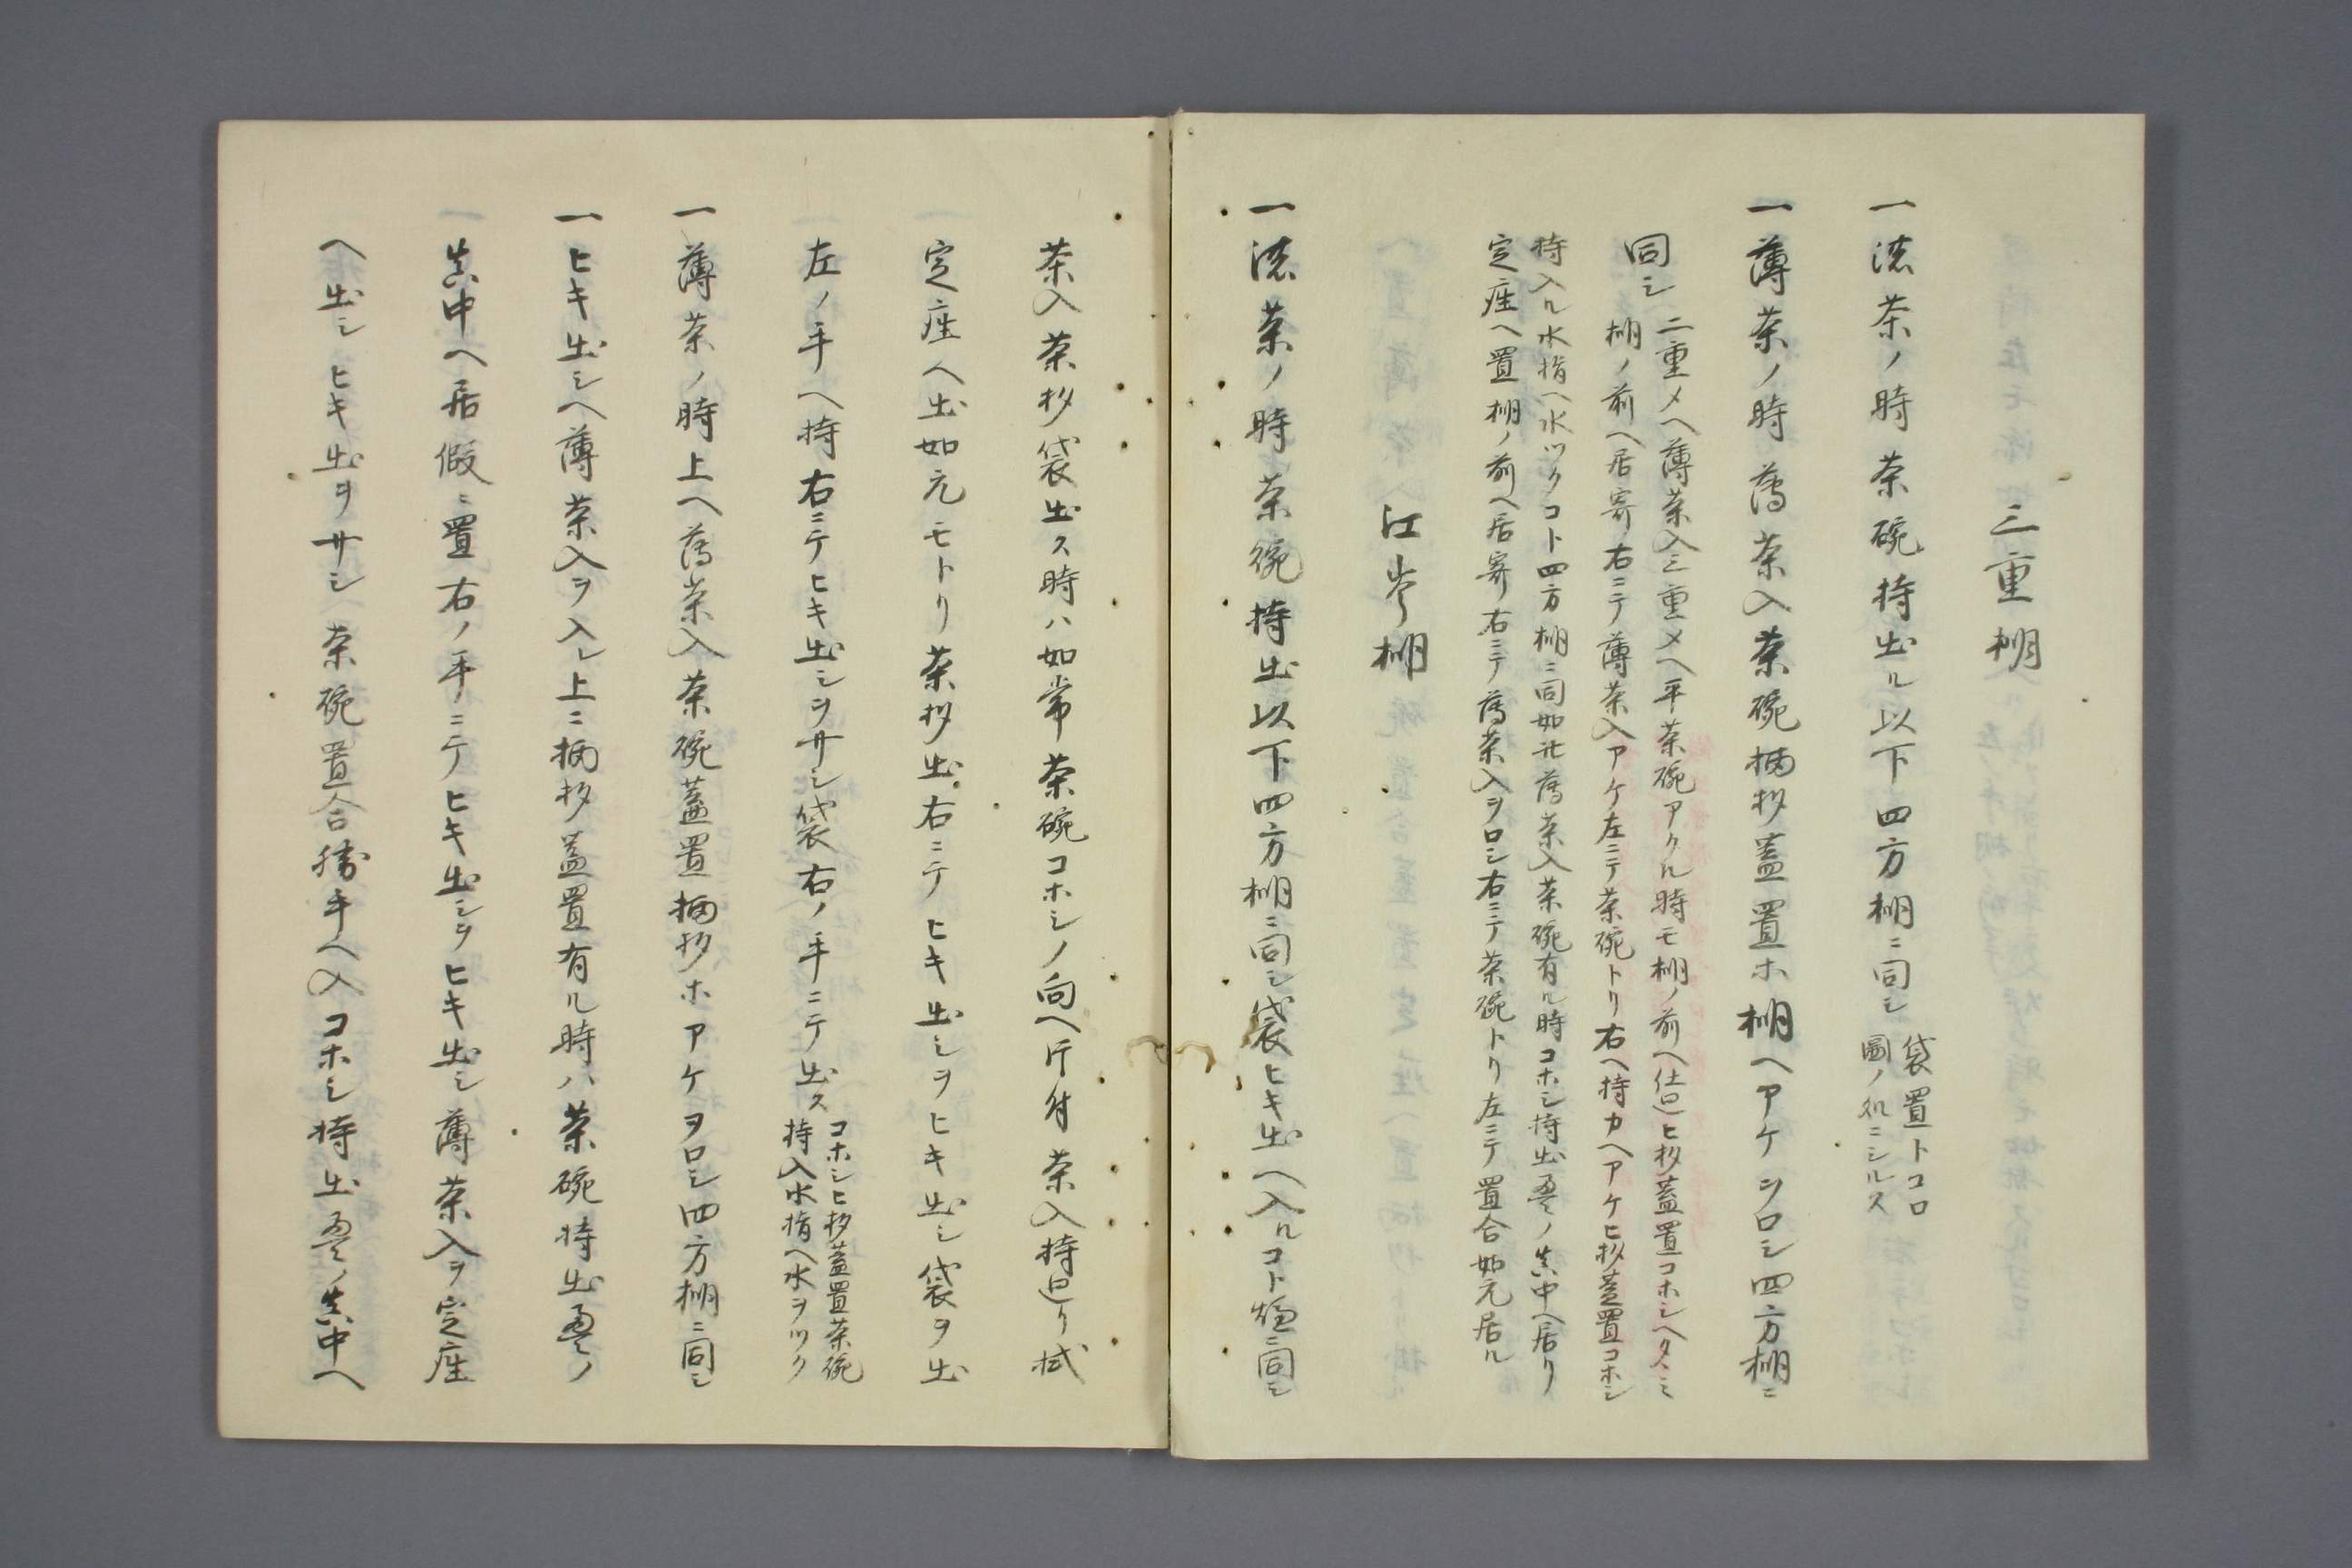 三重棚
一濃茶ノ時茶碗持出ル以下四方棚ニ同シ
袋置トコロ
圖ノ処ニシルス
一薄茶ノ時薄茶入茶碗柄杓蓋置ホ棚ヘアケヲロシ四方棚ニ
同シ
二重メヘ薄茶入三重メヘ平茶碗アクル時モ棚ノ前ヘ仕回ヒ杓蓋置コホシヘタヽミ
棚ノ前ヘ居寄右ニテ薄茶入アケ左ニテ茶碗トリ右ヘ持カヘアケヒ杓蓋置コホシ
持入ル水指ヘ水ツクコト四方棚ニ同如此薄茶入茶碗有ル時コホシ持出畳ノ真中ヘ居リ
定座ヘ置棚ノ前ヘ居寄右ニテ薄茶入ヲロシ右ニテ茶碗トリ左ニテ置合如元居ル
江岑棚
一濃茶ノ時茶碗持出以下四方棚ニ同シ袋ヒキ出ヘ入ルコト爐ニ同シ
茶入茶杓袋出ス時ハ如常茶碗コホシノ向ヘ片付茶入持回リ拭
定座ヘ出如元モトリ茶杓出右ニテヒキ出シヲヒキ出シ袋ヲ出
左ノ手ヘ持右ニテヒキ出シヲサシ袋右ノ手ニテ出ス
コホシヒ杓蓋置茶碗
持入水指ヘ水ヲツク
一薄茶ノ時上ヘ薄茶入茶碗蓋置柄杓ホアケヲロシ四方棚ニ同シ
一ヒキ出シヘ薄茶入ヲ入レ上ニ柄杓蓋置有ル時ハ茶碗持出畳ノ
真中ヘ居假ニ置右ノ手ニテヒキ出シヲヒキ出シ薄茶入ヲ定座
ヘ出シヒキ出ヲサシ茶碗置合勝手ヘ入コホシ持出畳ノ真中ヘ